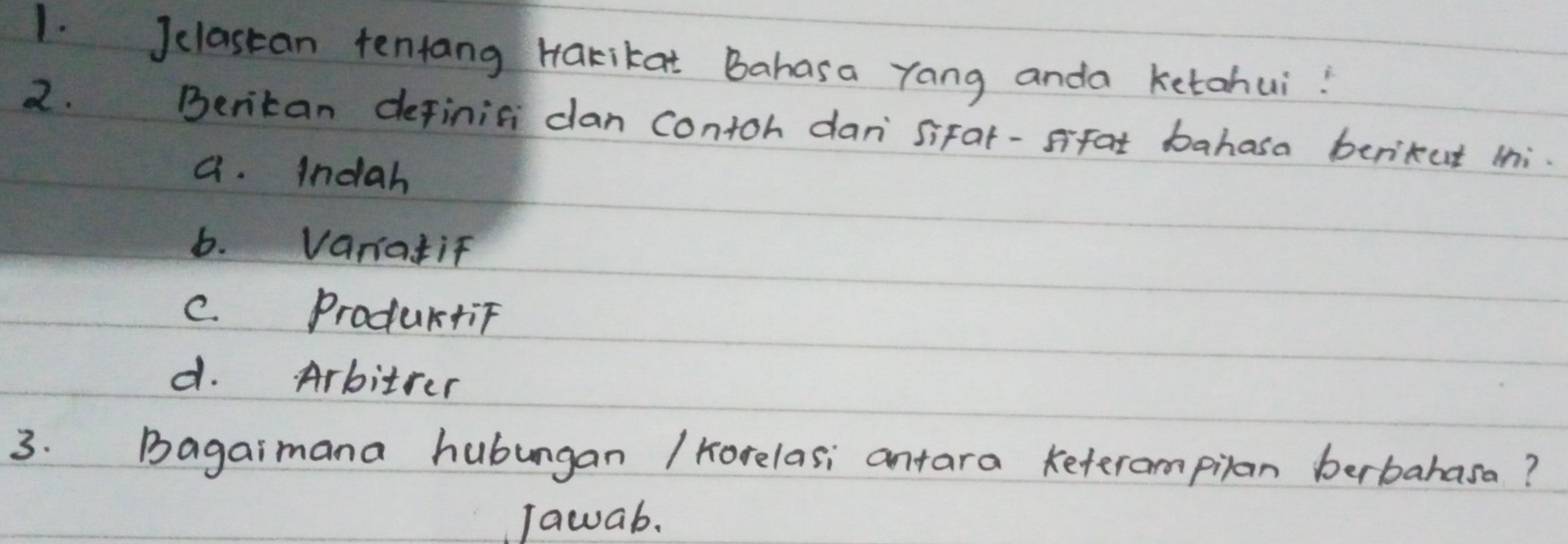 1. Jelaskan tentang Hakikat Bahasa Yang anda Ketahui !
2. Berikan definisi dan contoh dari sifat-sifat bahasa berikut ini.
a. Indah
b. Variatif
c. Produktif
d. Arbitrer
3. Bagaimana hubungan / Korelasi antara keterampilan berbahasa ?
Jawab.